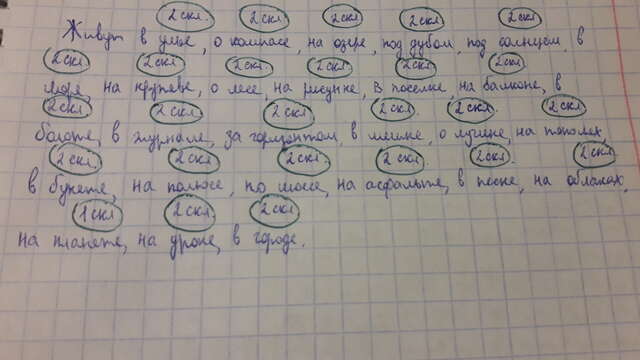 2 скл. 2 скл. 2 скл. 2 скл. 2 скл.
Живут в улье, о компасе, на озере, под дубом, под солнцем, в
2 скл. 2 скл. 2 скл. 2 скл. 2 скл. 2 скл.
море, на крупеве, о лесе, на рисунке, в поселке, на балконе, в
2 скл. 2 скл. 2 скл. 2 скл. 2 скл. 2 скл.
болоте, в журнале, за горизонтом, в мешке, о лучше, на тополях,
2 скл. 2 скл. 2 скл. 2 скл. 2 скл. 2 скл.
в букете, на полюсе, по шоссе, на асфальте, в песке, на облаках,
1 скл 2 скл. 2 скл
на планете, на уроке, в городе.